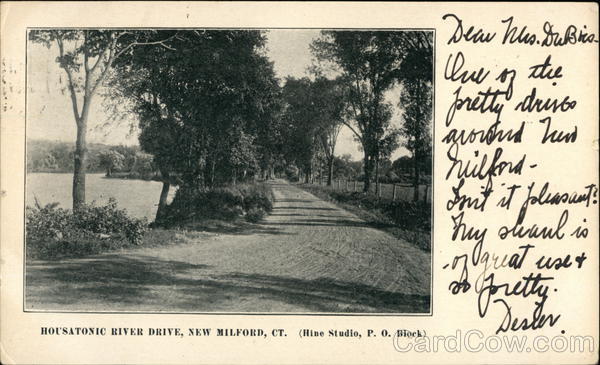 Dear Mrs. DuBois-
One of the
pretty drives
around New
Milford-
Isn't it pleasant?
My shawl is
of great use &
so pretty.
HOUSATONIC RIVER DRIVE, NEW MILFORD, CT. (Hine Studio, P. O. Block)
CardCow.com